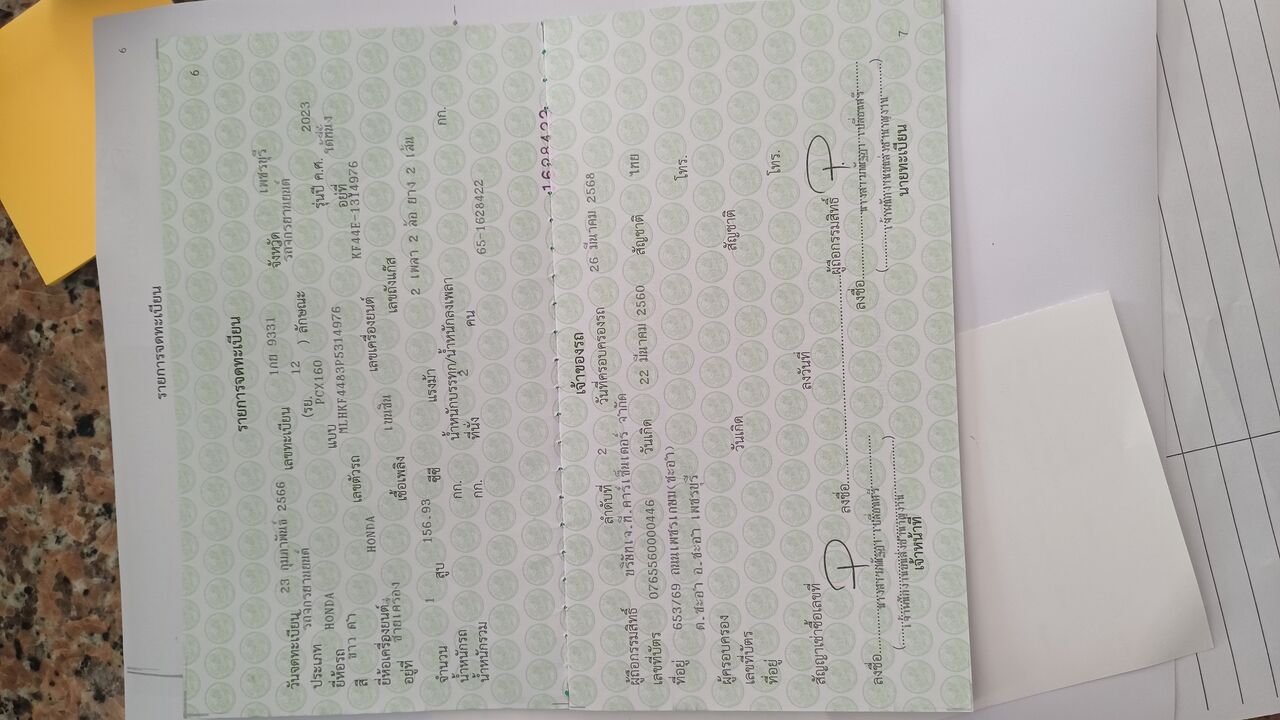 6
รายการจดทะเบียน
6
รายการจดทะเบียน
วันจดทะเบียน 23 กุมภาพันธ์ 2566 เลขทะเบียน 1กย 9331 จังหวัด เพชรบุรี
ประเภท รถจักรยานยนต์ (รย. 12 ) ลักษณะ รถจักรยานยนต์
ยี่ห้อรถ HONDA แบบ PCX160 รุ่นปี ค.ศ. 2023
สี ขาว ดำ เลขตัวรถ MLHKF4483P5314976 อยู่ที่ ใต้ที่นั่ง
ยี่ห้อเครื่องยนต์ HONDA เลขเครื่องยนต์ KF44E-1314976
อยู่ที่ ซ้ายเครื่อง เชื้อเพลิง เบนซิน เลขถังแก๊ส
จำนวน 1 สูบ 156.93 ซีซี แรงม้า 2 เพลา 2 ล้อ ยาง 2 เส้น
น้ำหนักรถ กก. น้ำหนักบรรทุก/น้ำหนักลงเพลา กก.
น้ำหนักรวม กก. ที่นั่ง 2 คน 65-1628422
1628422
เจ้าของรถ
ลำดับที่ 2 วันที่ครอบครองรถ 26 มีนาคม 2568
ผู้ถือกรรมสิทธิ์ บริษัทเจ.ที.คาร์เซ็นเตอร์ จำกัด
เลขที่บัตร 0765560000446 วันเกิด 22 มีนาคม 2560 สัญชาติ ไทย
ที่อยู่ 653769 ถนนเพชรเกษม(ชะอำ) โทร.
ต.ชะอำ อ.ชะอำ เพชรบุรี
ผู้ครอบครอง
เลขที่บัตร วันเกิด สัญชาติ
ที่อยู่ โทร.
สัญญาเช่าซื้อเลขที่ ลงวันที่
ลงชื่อ ผู้ถือกรรมสิทธิ์
ลงชื่อ ลงชื่อ
เจ้าหน้าที่ นายทะเบียน
7